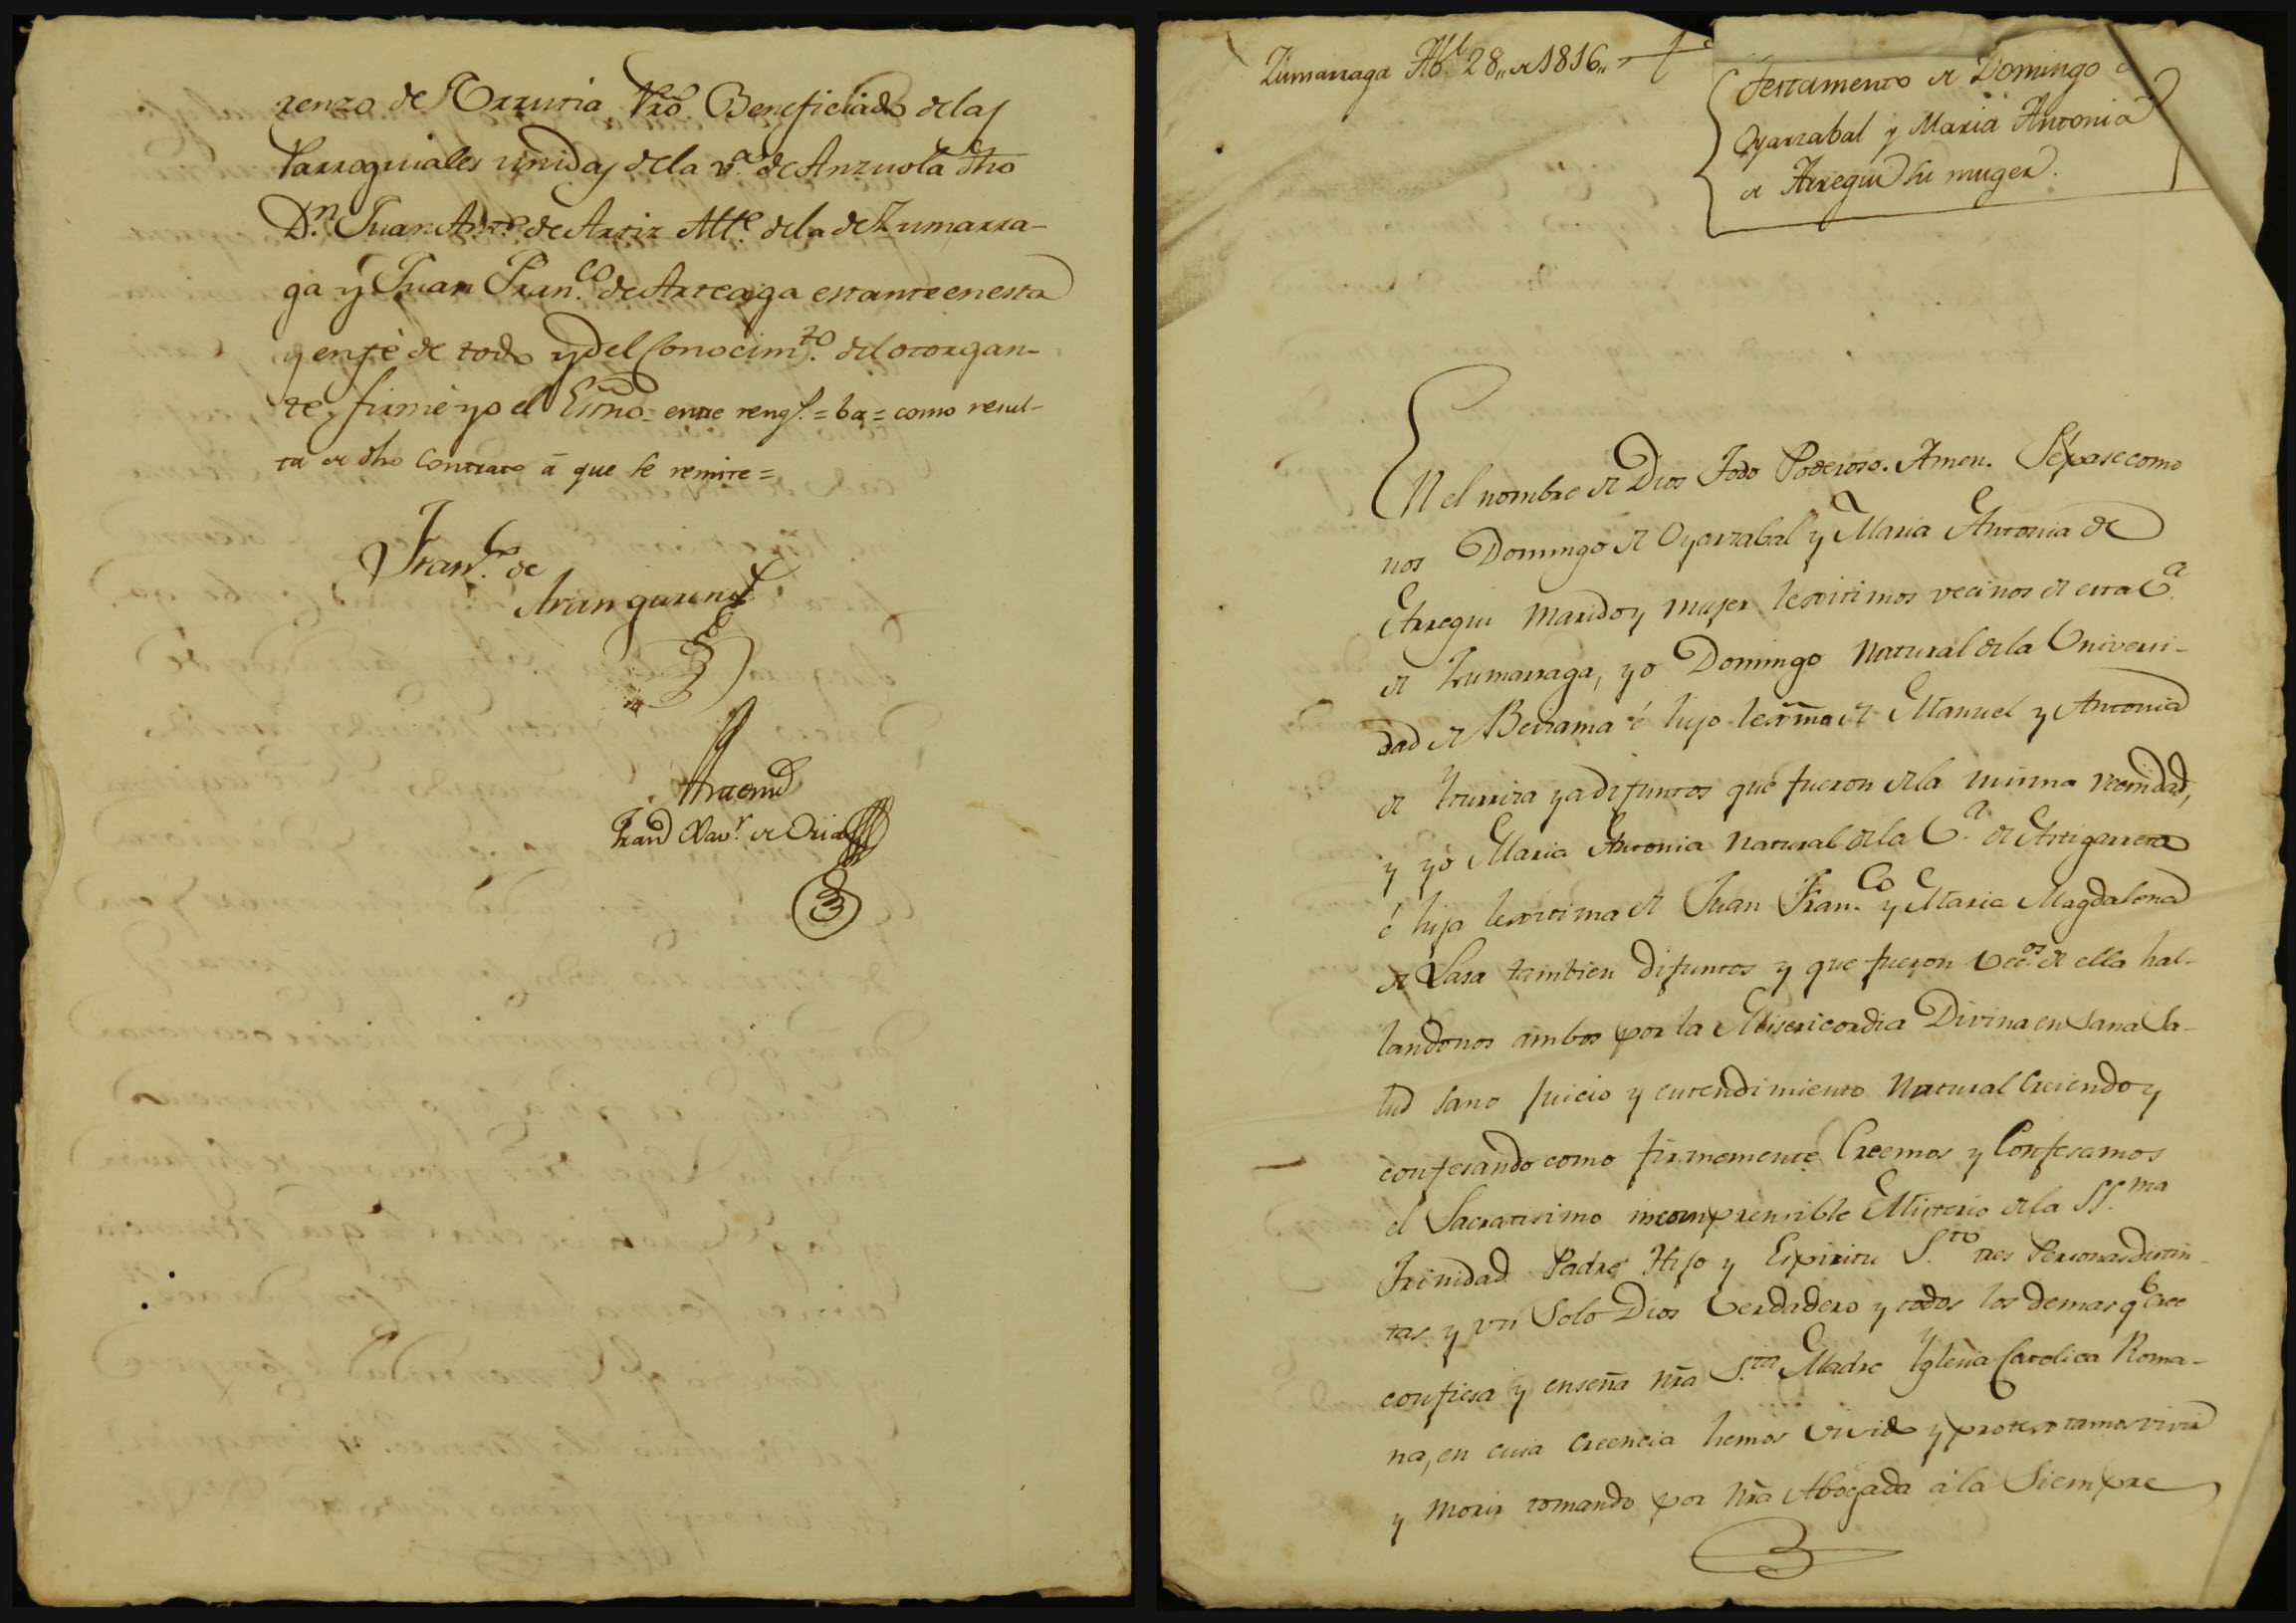 renzo de Orruria Pro. Beneficiado delas
Parroquiales unidas dela va. de Anzuola dho
Dn. Juan Anto. de Artiz Alle. dela de Zumarra-
ga y Juan Franco. de Arteaga estante en esta
y en fé de todo y del Conocimto. del otorgan-
te, firmé yo el Esno = entre rengs. = ba = como resul-
ta de dho Contrato á que se remite =
Franco. de
Aranguren
Antemi
Fran Xavr. de Oria
Zumarraga Abl 28,, de 1816,,
Testamento de Domingo de
Oyarzabal y Maria Antonia
de Arregui su muger.
En el nombre de Dios Todo Poderoso. Amen. Sépase como
nos Domingo de Oyarzabal y Maria Antonia de
Arregui Marido y Mujer lexitimos vecinos de esta Va.
de Zumarraga, yo Domingo Natural dela Universi-
dad de Beizama é hijo lexmo de Manuel y Antonia
de Yturriza ya difuntos que fueron dela misma vecindad,
y yo Maria Antonia Natural dela Va. de Astigarreta
é hija lexitima de Juan Franco. y Maria Magdalena
de Lasa tambien difuntos y que fueron Vecos. de ella hal-
landonos ambos por la Misericordia Divina en Sana Sa-
lud sano Juicio y entendimiento Natural Creiendo y
confesando como firmemente Creemos y Confesamos
el Sacratisimo incomprensible Misterio dela SSma
Trinidad Padre Hijo y Espiritu Sto. tres Personas distin-
tas y un Solo Dios Verdadero y todos los demas qe Cree
confiesa y enseña Nra Sta. Madre Yglesia Catolica Roma-
na, en cuia creencia hemos vivido y protestamos vivir
y Morir tomando por Nra Abogada á la Siempre